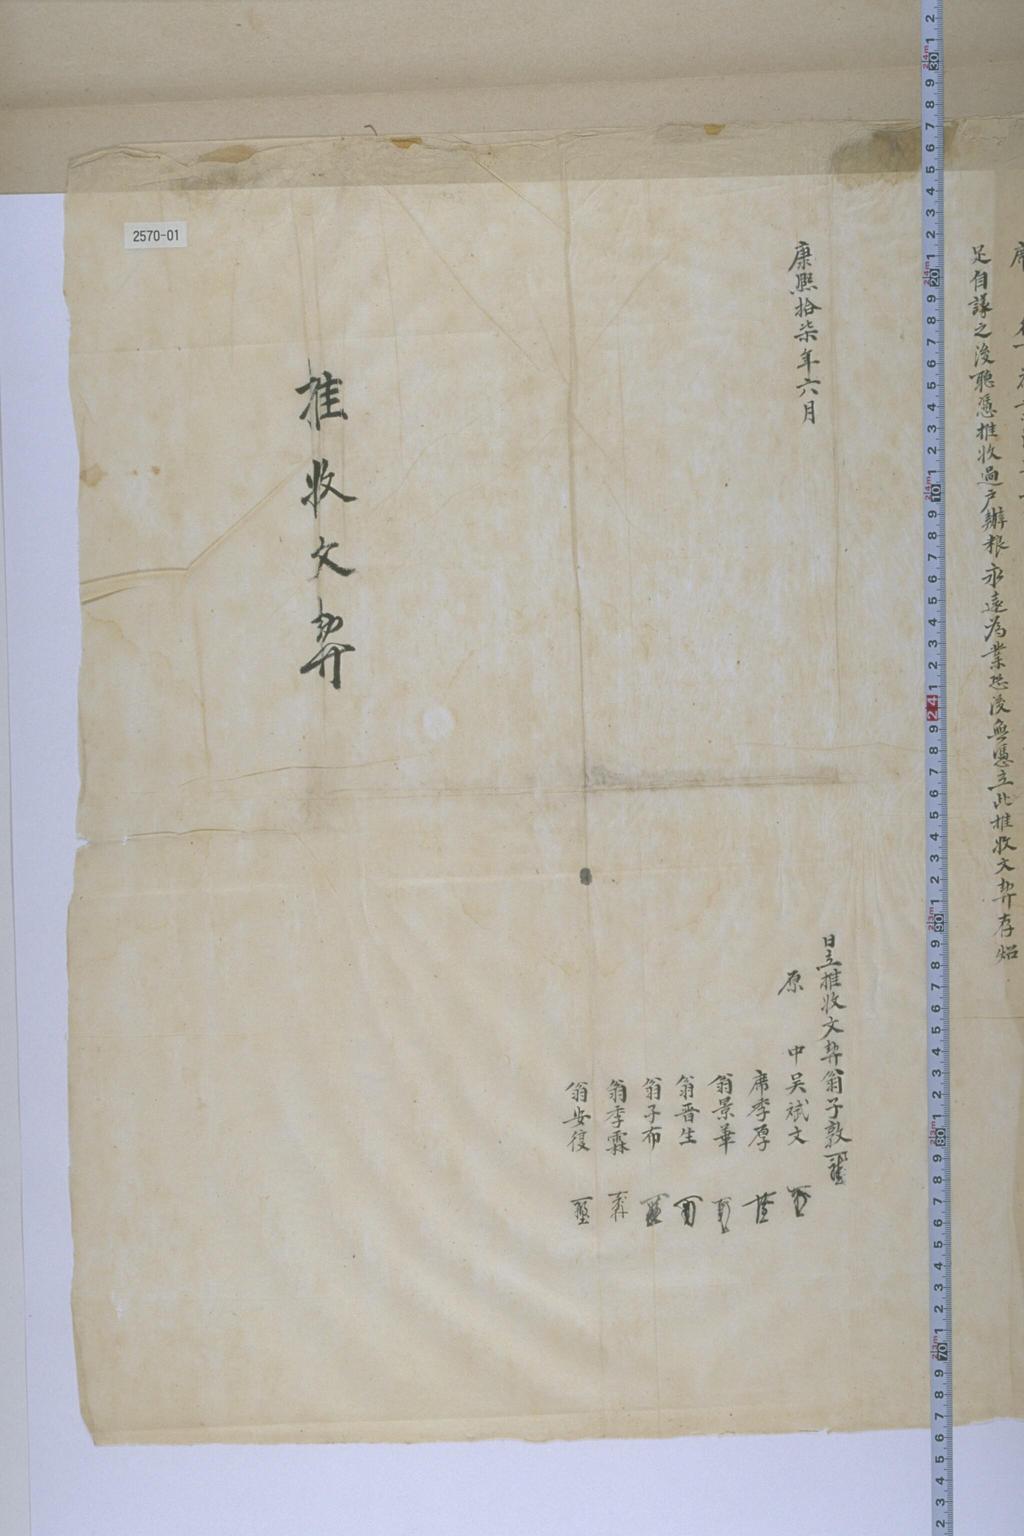 足自議之後聽憑推收過戶辦粮永遠為業恐後無憑立此推收文契存炤
康熙拾柒年六月
日立推收文契翁子敦
原
中吳斌文
席季厚
翁景華
翁晋生
翁子布
翁季霖
翁安復
推收文契
2570-01